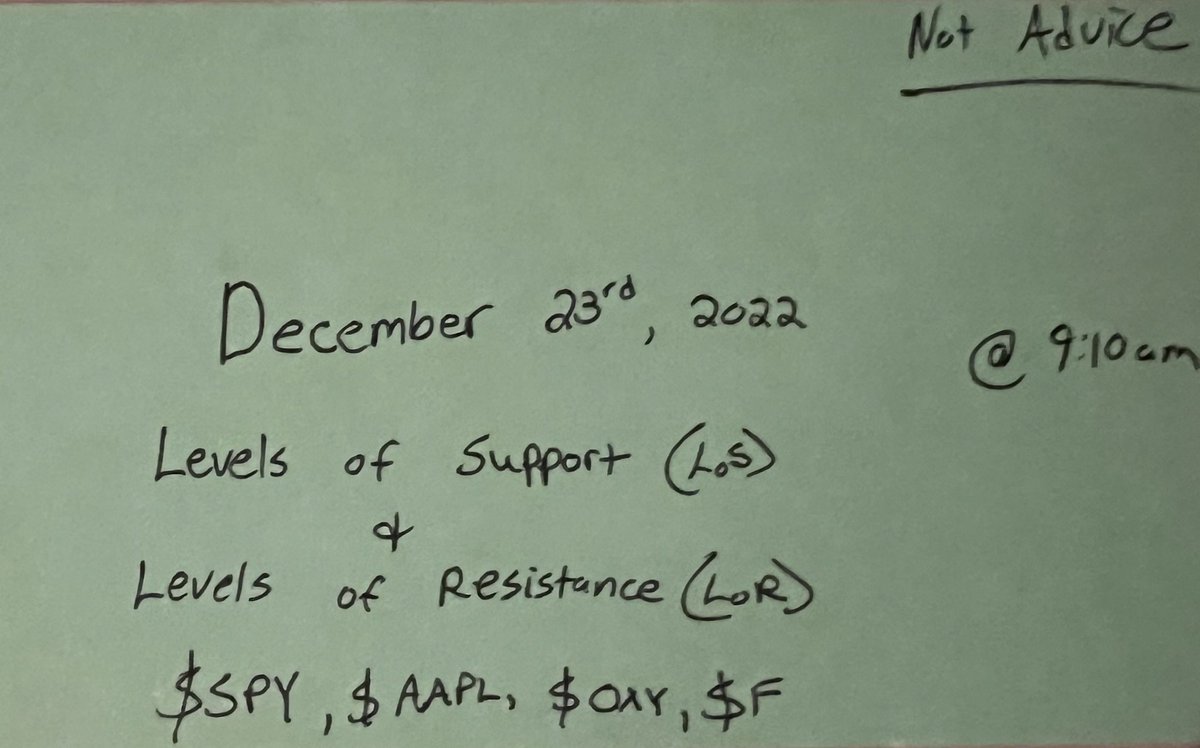 Not Advice
December 23rd, 2022
@ 9:10am
Levels of Support (LoS)
&
Levels of Resistance (LoR)
$SPY, $AAPL, $OXY, $F